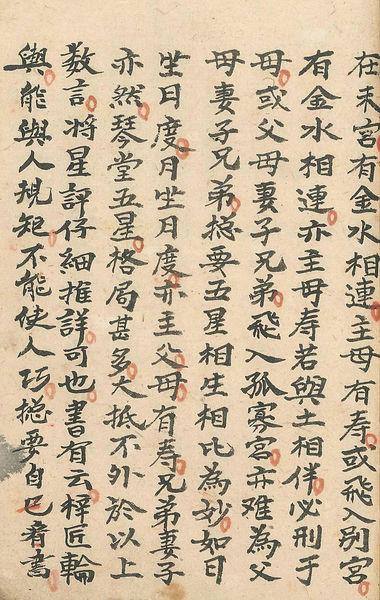 在未宮有金水相連主母有壽或飛入别宮
有金水相連亦主母寿若與土相伴必刑于
母或父母妻子兄弟飛入孤寡宮亦难為父
母妻子兄弟捴要五星相生相比為妙如日
坐日度月坐日度亦主父母有寿兄弟妻子
亦然琴堂五星格局甚多大抵不外於以上
数言将星評仔細推詳可也書有云梓匠輪
輿能與人規矩不能使人巧捴要自己看書